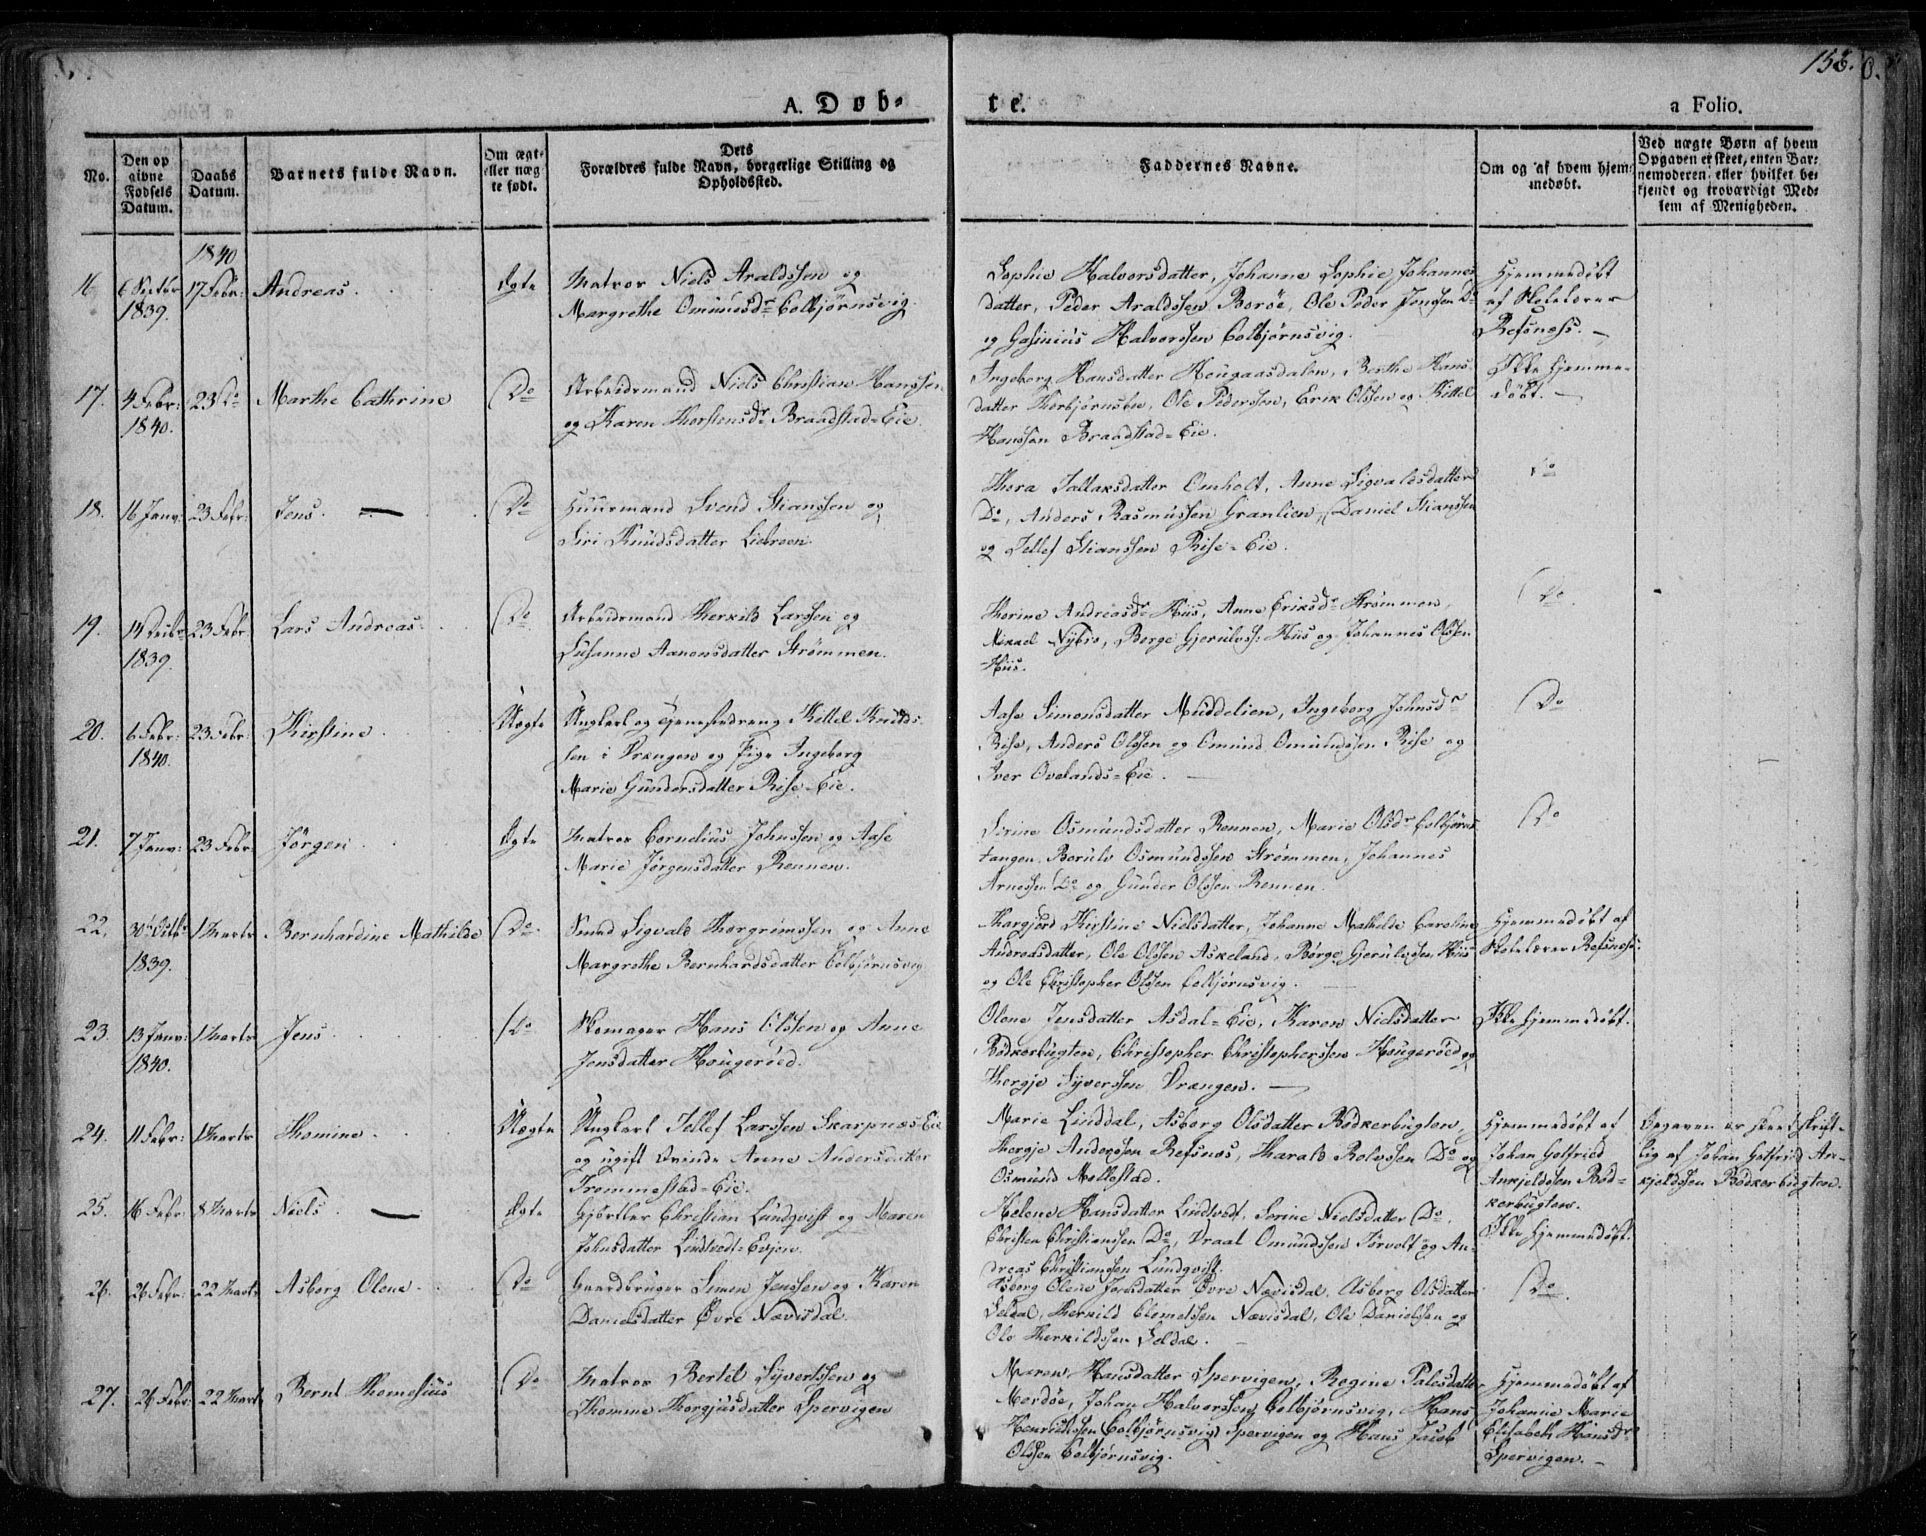 153.
A. Døb-
te.
a Folio.
No.
Den op
givne
Fødsels
Datum.
Daabs
Datum.
Barnets fulde Navn.
Om ægte
eller uæg
te født.
Dets
Forældres fulde Navn, borgerlige Stilling og
Opholdssted.
Faddernes Navne.
Om og af hvem hjem-
medøbt.
Ved uægte Børn af hvem
Opgaven er skeet, enten Bar-
nemoderen eller hvilket be-
kjendt og troværdigt Med-
lem af Menigheden.
1840
16
1839.
17 Febr:
Andreas
Ægte
Matros Niels Araldssen og
Margrethe Omundsdr Colbjørnsvig.
Sophie Halvorsdatter, Johanne Sophie Johannes
datter, Peder Araldssen Borøe, Ole Peder Jenssen Do
og Gasinius Halvorssen Colbjørnsvig.
Hjemmedøbt
af Skolelærer
Refsnæss.
17.
4 Febr:
1840.
23 Do
Marthe Cathrine
Do
Arbeidsmand Niels Christian Hanssen
og Karen Thorstensdr Braadstad-Eie.
Ingeborg Hansdatter Hougaasdalen, Berthe Hans
datter Thorbjørnsbu, Ole Pederssen, Erik Olssen og Kittel
Hanssen Braadstad-Eie.
Ikke hjemme-
døbt.
18.
16 Janv:
23 Febr:
Jens
Do
Huusmand Svend Stianssen og
Siri Knudsdatter Liebroen.
Thora Tallaksdatter Omholt, Anne Sigvaldsdatter
Do, Anders Rasmussen Granlien, Daniel Stianssen
og Tellef Stianssen Rise-Eie.
Do
19.
14 Decbr
1839.
23 Febr
Lars Andreas
Do
Arbeidsmand Therkild Larssen og
Susanne Aanonsdatter Strømmen.
Thorine Andreasdr Hiis, Anne Eriksdr Strømmen,
Mikkel Nybro, Børge Gjerulvss: Hiis og Johannes Olssen
Hiis.
Do
20.
6 Febr:
1840.
23 Febr:
Kirstine
Uægte
Ungkarl og Tjenestedreng Kittel Knuds-
sen i Vrængen og Pige Ingeborg
Marie Gundersdatter Rise-Eie.
Aase Simonsdatter Muddelien, Ingeborg Johnsdr
Rise, Anders Olssen og Omund Omundssen Rise og
Iver Ovelands-Eie.
Do
21.
7 Janv:
23 Febr:
Jørgen
Ægte
Matros Cornelius Johnssen og Aase
Marie Jørgensdatter Rennen.
Sirine Osmundsdatter Rennen, Marie Olsdr Colbjørns
tangen, Berulv Osmundssen Strømmen, Johannes
Arnessen Do og Gunder Olssen Rennen.
Do
22.
1839.
1 Marts
Bernhardine Mathilde
Do
Smed Sigvald Thorgrimssen og Anne
Margrethe Bernhardsdatter Colbjørnsvig
Margjerd Kirstine Nielsdatter, Johanne Mathilde Caroline
Andreasdatter, Ole Olssen Askeland, Børge Gjerulvssen Hiis
og Ole Christopher Olssen Colbjørnsvig.
Hjemmedøbt af
Skolelærer Refsnæss.
23.
13 Janv:
1840.
1 Marts
Jens
Do
Skomager Hans Olssen og Anne
Jensdatter Hougerøed.
Olene Jensdatter Asdal-Eie, Karen Nielsdatter
Bødkerbugten, Christopher Christopherssen Hougerøed og
Thorgje Syverssen Vrængen.
Ikke hjemmedøbt.
24.
11 Febr:
1 Marts
Thomine
Uægte
Ungkarl Tellef Larssen Skarpnæs-Eie
og ugift Qvinde Anne Andersdatter
Trommestad-Eie.
Marie Linddal, Asborg Olsdatter Bødkerbugten,
Thorgje Anderssen Refsnæs, Harald Rolvssen Do og
Osmund Mollestad.
Hjemmedøbt af
Johan Gotfried
Ankjeldssen Bød-
kerbugten.
Opgaven er skeet skrift-
lig af Johan Gotfried An-
kjeldssen Bødkerbugten.
25.
16 Febr:
8 Marts
Niels
Ægte
Gjørtler Christian Lundqvist og Maren
Johnsdatter Lindtvedt-Evjen.
Helene Hansdatter Lindtvedt, Serine Nielsdatter Do,
Christen Christianssen Do, Vraal Omundssen Torvolt og An-
dreas Christianssen Lundqvist.
Ikke hjemmedøbt.
26.
26 Febr:
22 Marts
Asborg Olene
Do
Gaardbruger Simon Jenssen og Karen
Danielsdatter Øvre Nævisdal.
Asborg Olene Jensdatter Øvre Nævisdal, Asborg Olsdatter
Seldal, Therkild Clemetssen Nævisdal, Ole Danielssen og
Ole Therkildssen Seldal.
Do
27.
26 Febr
22 Marts
Bernt Thomesius
Do
Matros Bertel Syvertssen og
Thomine Thorgjusdatter Spervigen
Maren Hansdatter Spervigen, Regine Palesdatter
Merdøe, Johan Halvorssen Colbjørnsvig, Hans
Henrikssen (Colbjørnsvig) Spervigen og Hans Jacob
Olssen Colbjørnsvig.
Hjemmedøbt af
Johanne Marie
Elisabeth Hansdr
Spervigen.